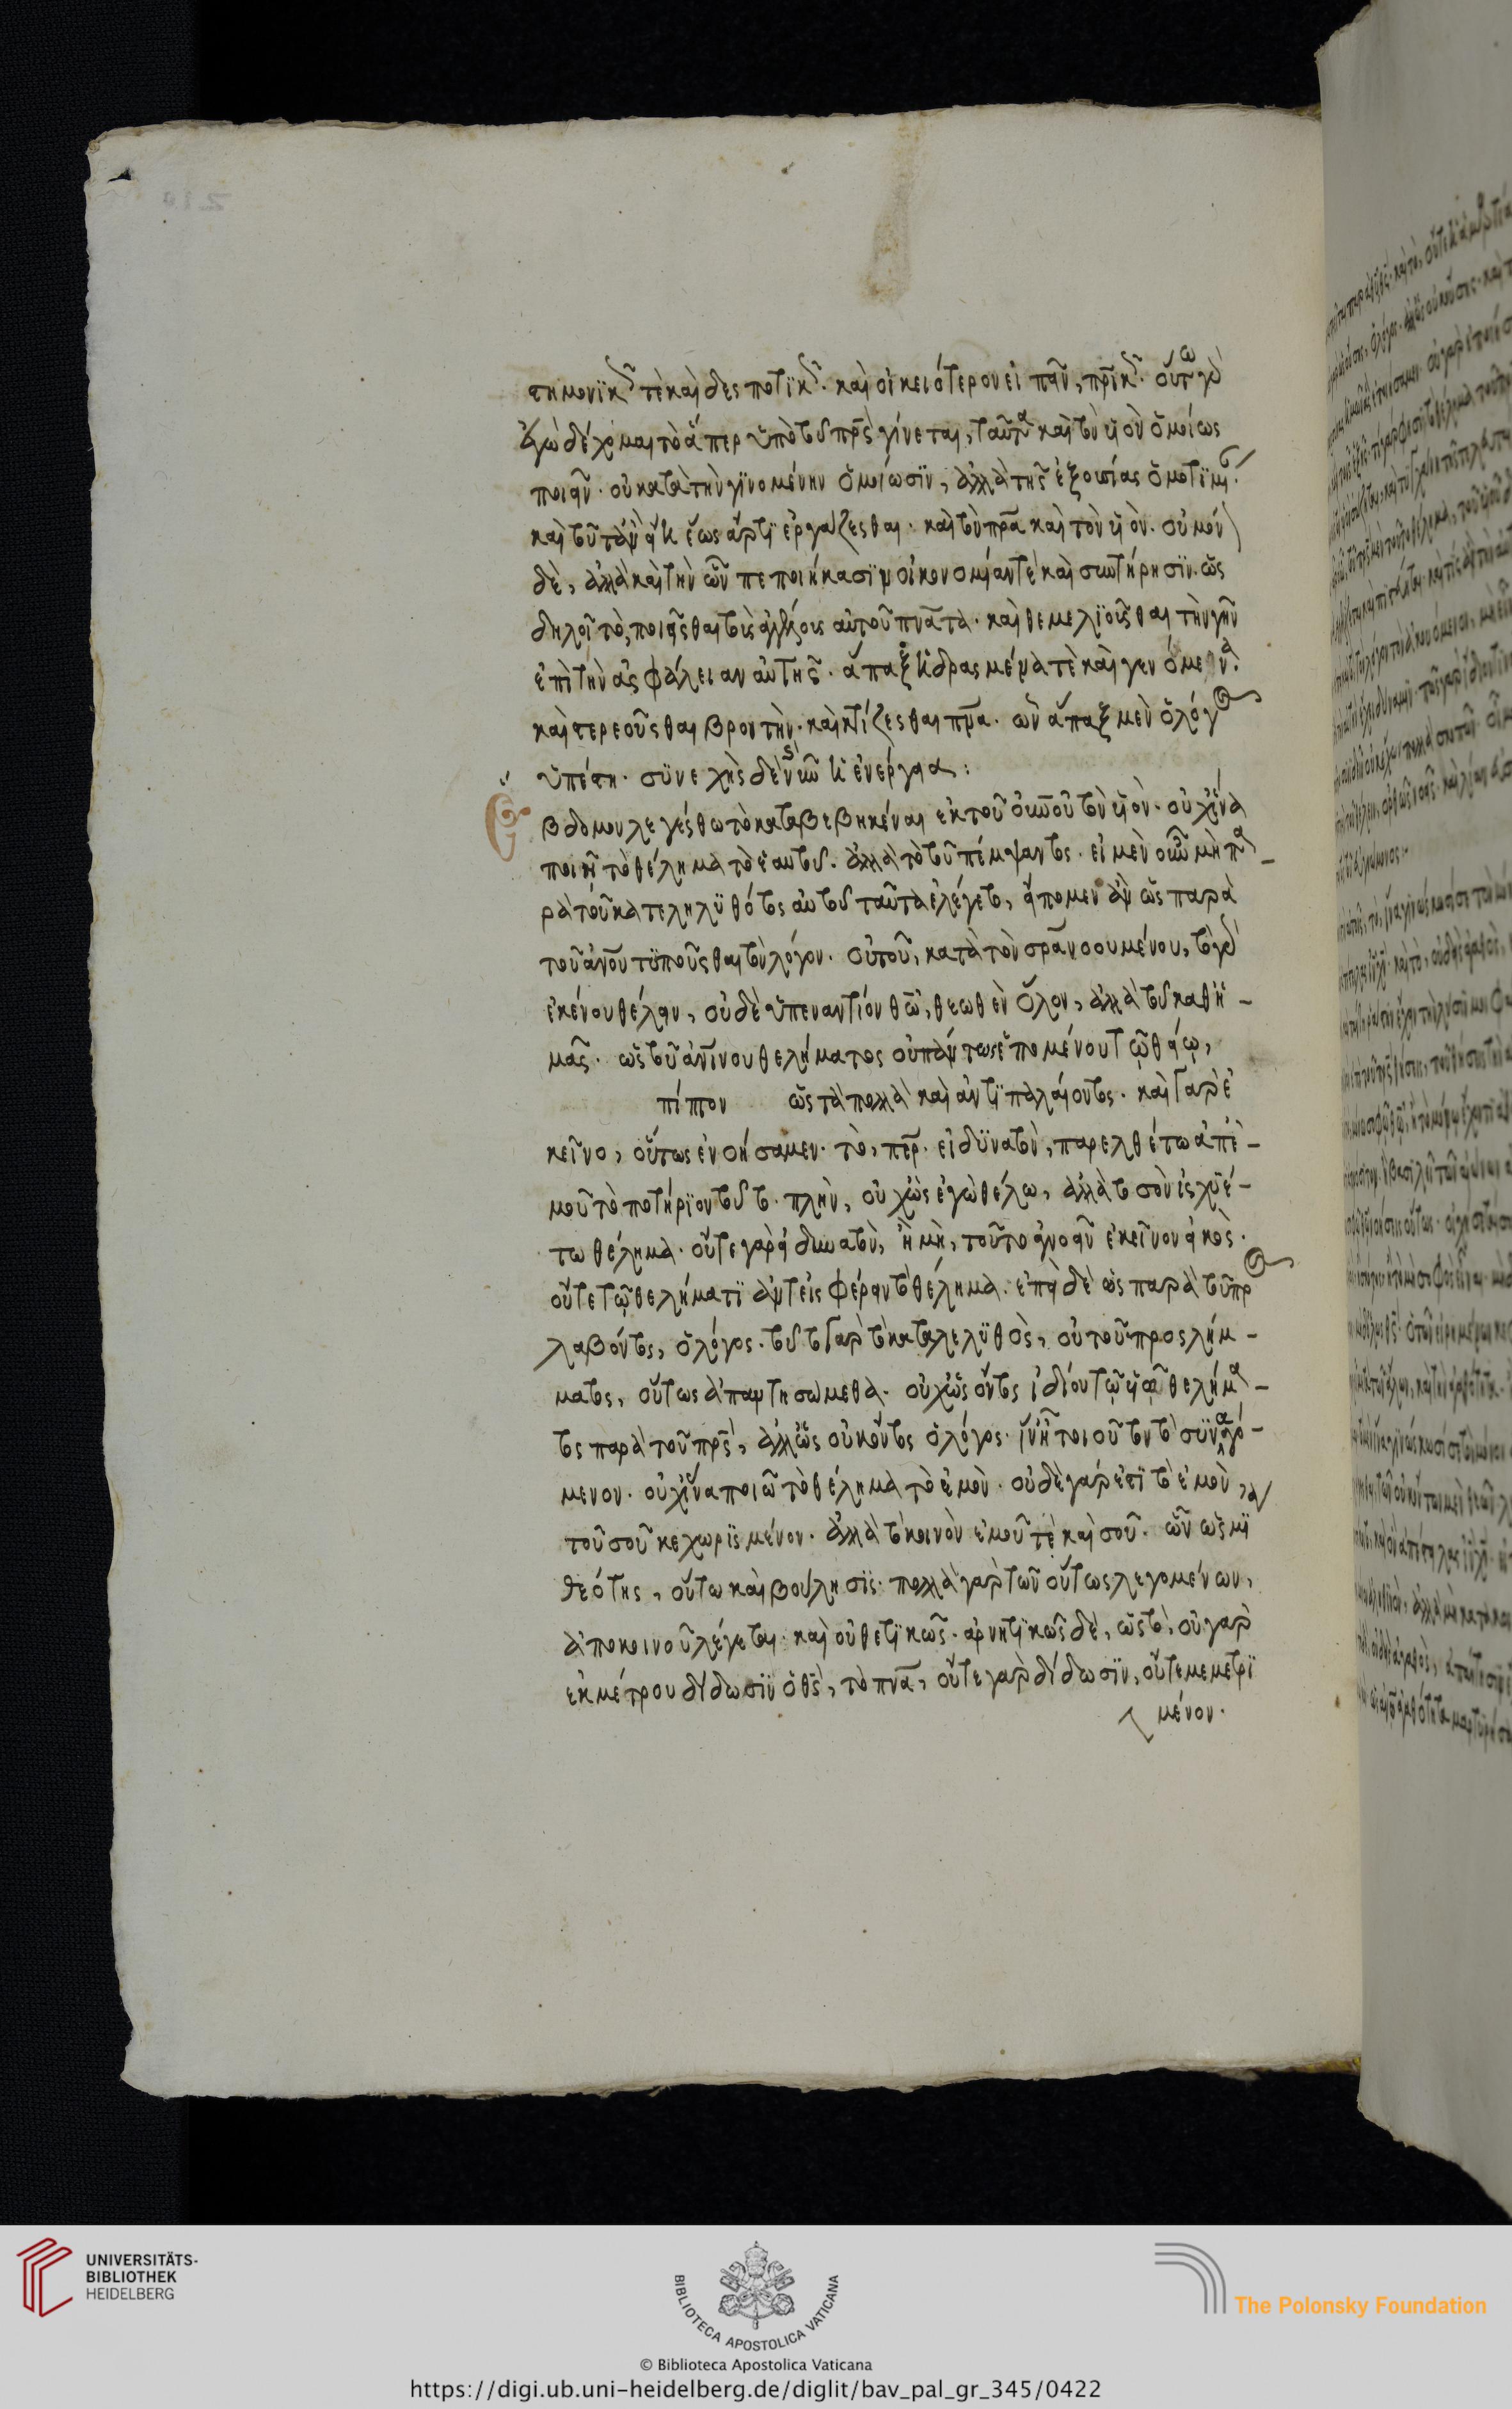 στημονικῶς τὲ καὶ δεσποτϊκῶς. καὶ οἰκειότερον εἰπεῖν, πρϊκῶς. οὕτω γὰρ
ἐγὼ δέχομαι τὸ ἅπερ ὑπὸ τοῦ πρς γίνεται, ταῦτα καὶ τὸν ϋἱὸν ὁμοίως
ποιεῖν. οὐ κατὰ τὴν γϊνομένην ὁμοίωσϊν, ἀλλὰ τῆς ἐξουσίας ὁμοτϊμ.
καὶ τοῦτ' ἂν εἴη ἕως ἄρτϊ ἐργάζεσθαι. καὶ τὸν πρα καὶ τὸν ϋἱὸν. οὐ μόν
δὲ, ἀλλὰ καὶ τὴν ὧν πεποιήκασϊν οἰκονομίαν τὲ καὶ συντήρησϊν. ὡς
δηλοῖ τὸ, ποιεῖσθαι τοὺς ἀγγέλους αὐτοῦ πνατα. καὶ θεμελϊοῦσθαι τὴν γῆν
ἐπὶ τὴν ἀσφάλειαν αὐτῆς. ἅπαξ ἡδρασμένα τὲ καὶ γενόμενα.
καὶ στερεοῦσθαι βροντὴν. καὶ κτίζεσθαι πνα. ὧν ἅπαξ μὲν ὁ λόγος
ὑπέστη. συνεχὴς δὲ νῦν ἡ ἐνέργεια:
Ἕβδομον λεγέσθω τὸ καταβεβηκέναι ἐκ τοῦ οὐνοῦ τὸν ϋἱὸν. οὐχ ἵνα
ποιῇ τὸ θέλημα τὸ ἑαυτοῦ. ἀλλὰ τὸ τοῦ πέμψαντος. εἰ μὲν οὖν μὴ πα-
ρὰ τοῦ κατεληλϋθότος αὐτοῦ ταῦτα ἐλέγετο, εἴπομεν ἂν ὡς παρὰ
τοῦ ἀνου τϋποῦσθαι τὸν λόγον. οὐ τοῦ, κατὰ τὸν σρα νοουμένου, τὸ γὰρ
ἐκείνου θέλειν, οὐδὲ ὑπεναντίον θῶ, θεωθὲν ὅλον, ἀλλὰ τοῦ καθ' ἡ-
μᾶς. ὡς τοῦ ἀνϊνου θελήματος οὐ πάντως ἑπομένου τῷ θείῳ,
πίπτον ὡς τὰ πολλὰ καὶ ἀντϊπαλαίοντος. καὶ γὰρ ἐ
κεῖνο, οὕτως ἐνοήσαμεν. τὸ, περ. εἰ δϋνατὸν, παρελθέτω ἀπ' ἐ-
μοῦ τὸ ποτήρϊον τοῦτο. πλὴν, οὐχ ὡς ἐγὼ θέλω, ἀλλὰ τὸ σὸν ἰσχϋέ-
τω θέλημα. οὔτε γὰρ εἰ δυνατὸν, ἢ μὴ, τοῦτο ἀγνοεῖν ἐκεῖνον εἰκὸς.
οὔτε τῷ θελήματϊ ἀντεισφέρειν τὸ θέλημα. ἐπεὶ δὲ ὡς παρὰ τοῦ προσ
λαβόντος, ὁ λόγος. τοῦτο γὰρ τὸ κατεληλϋθὸς, οὐ τοῦ προσλήμ-
ματος, οὕτως ἀπαντησώμεθα. οὐχ ὡς ὄντος ἰδίου τῷ ϋἱῷ θελήμα-
τος παρὰ τοῦ πρς, ἀλλ' ὡς οὐκ ὄντος ὁ λόγος. ἵν' ᾖ τοιοῦτον τὸ συναγό-
μενον. οὐχ ἵνα ποιῶ τὸ θέλημα τὸ ἐμὸν. οὐδὲ γάρ ἐστϊ τὸ ἐμὸν,
τοῦ σοῦ κεχωρϊσμένον. ἀλλὰ τὸ κοινὸν ἐμοῦ τὲ καὶ σοῦ. ὧν ὡς μϊ
θεότης, οὕτω καὶ βούλησϊς. πολλὰ γὰρ τῶν οὕτως λεγομένων,
ἀποκοινοῦ λέγεται. καὶ οὐ θετϊκῶς. ἀρνητϊκῶς δὲ, ὡς τὸ, οὐ γὰρ
ἐκ μέτρου δίδωσϊν ὁ θς, τὸ πνα, οὔτε γὰρ δίδωσϊν, οὔτε μεμετρϊ
μένον.
UNIVERSITÄTS-
BIBLIOTHEK
HEIDELBERG
BIBLIOTECA APOSTOLICA VATICANA
The Polonsky Foundation
© Biblioteca Apostolica Vaticana
https://digi.ub.uni-heidelberg.de/diglit/bav_pal_gr_345/0422